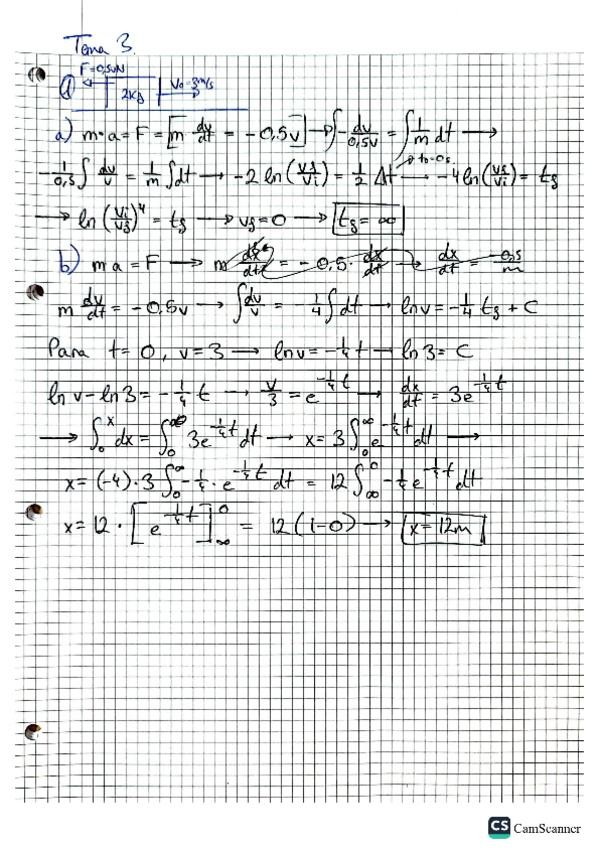 Tema 3.
① F=0,5vN 2Kg V₀=3m/s
a) m·a = F = [m dv/dt = -0,5v] → ∫-dv/0,5v = ∫1/m dt →
-1/0,5 ∫dv/v = 1/m ∫dt → -2 ln(vf/vi) = 1/2 Δt → t₀=0s → -4 ln(vf/vi) = tf
→ ln(vi/vf)⁴ = tf → vf=0 → tf = ∞
b) m a = F → = -0,5· dx/dt → dx/dt = -0,5/m
m dv/dt = -0,5v → ∫dv/v = -1/4 ∫dt → ln v = -1/4 tf + C
Para t=0, v=3 → ln v = -1/4 t → ln 3 = C
ln v - ln 3 = -1/4 t → v/3 = e^(-1/4 t) → dx/dt = 3e^(-1/4 t)
→ ∫₀ˣ dx = ∫₀^∞ 3e^(-1/4 t) dt → x = 3∫₀^∞ e^(-1/4 t) dt →
x = (-4)·3 ∫₀^∞ -1/4 · e^(-1/4 t) dt = 12 ∫_∞^0 -1/4 e^(-1/4 t) dt
x = 12 · [e^(-1/4 t)]_∞^0 = 12(1-0) → x = 12m
CS CamScanner